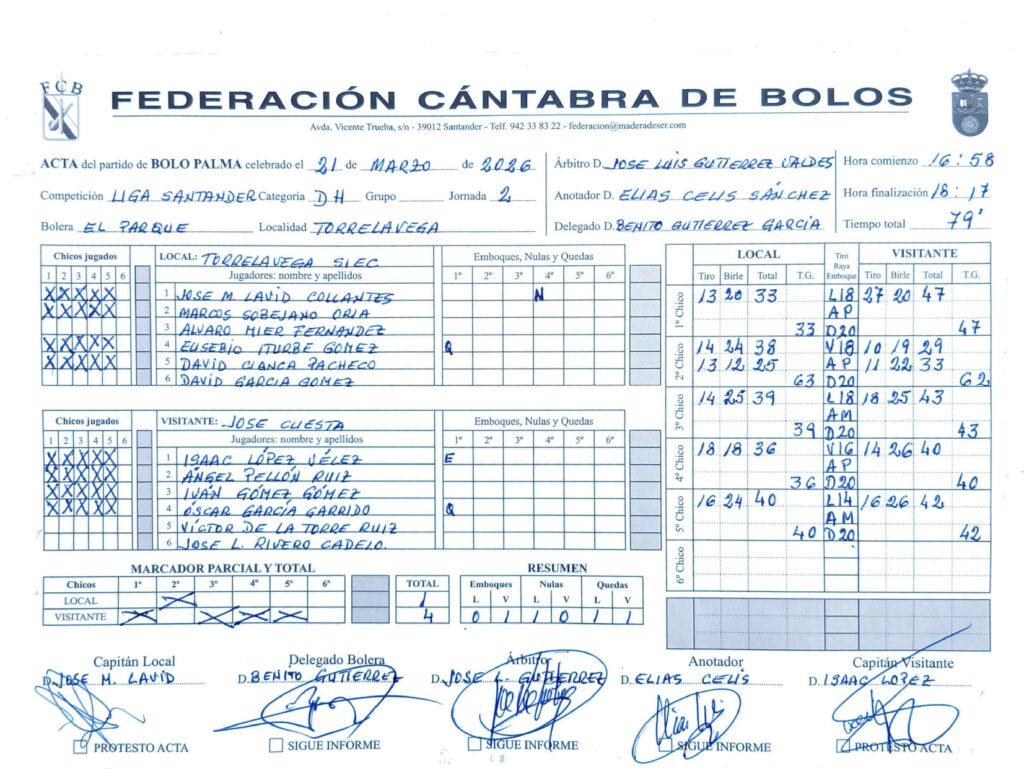 FCB
FEDERACIÓN CÁNTABRA DE BOLOS
Avda. Vicente Trueba, s/n - 39012 Santander - Telf. 942 33 83 22 - federacion@maderadeser.com
ACTA del partido de BOLO PALMA celebrado el 21 de MARZO de 2026
Competición LIGA SANTANDER Categoría DH Grupo Jornada 2
Bolera EL PARQUE Localidad TORRELAVEGA
Árbitro D. JOSE LUIS GUTIERREZ VALDES
Anotador D. ELIAS CELIS SÁNCHEZ
Delegado D. BENITO GUTIERREZ GARCÍA
Hora comienzo 16:58
Hora finalización 18:17
Tiempo total 79'
Chicos jugados
1 2 3 4 5 6
LOCAL: TORRELAVEGA SIEC.
Jugadores: nombre y apellidos
Emboques, Nulas y Quedas
1º 2º 3º 4º 5º 6º
X X X X X 1 JOSE M. LAVID COLLANTES N
X X X X X 2 MARCOS SOBEJANO ORIA
3 ALVARO MIER FERNANDEZ
X X X X X 4 EUSEBIO ITURBE GOMEZ Q
X X X X X 5 DAVID CIANCA PACHECO
6 DAVID GARCIA GOMEZ
Chicos jugados
1 2 3 4 5 6
VISITANTE: JOSE CUESTA
Jugadores: nombre y apellidos
Emboques, Nulas y Quedas
1º 2º 3º 4º 5º 6º
X X X X X 1 ISAAC LÓPEZ VÉLEZ E
X X X X X 2 ÁNGEL PELLÓN RUIZ
X X X X X 3 IVÁN GÓMEZ GÓMEZ
X X X X X 4 ÓSCAR GARCÍA GARRIDO Q
5 VÍCTOR DE LA TORRE RUIZ
6 JOSE L. RIVERO CADELO.
LOCAL Tiro Raya Emboque VISITANTE
Tiro Birle Total T.G. Tiro Birle Total T.G.
1º Chico 13 20 33 L18 27 20 47
AP
33 D20 47
2º Chico 14 24 38 V18 10 19 29
13 12 25 AP 11 22 33
63 D20 62
3º Chico 14 25 39 L18 18 25 43
AM
39 D20 43
4º Chico 18 18 36 V16 14 26 40
AP
36 D20 40
5º Chico 16 24 40 L14 16 26 42
AM
40 D20 42
6º Chico
MARCADOR PARCIAL Y TOTAL
Chicos 1º 2º 3º 4º 5º 6º TOTAL
LOCAL X 1
VISITANTE X X X X 4
RESUMEN
Emboques Nulas Quedas
L V L V L V
0 1 1 0 1 1
Capitán Local
D. JOSE M. LAVID
PROTESTO ACTA
Delegado Bolera
D. BENITO GUTIERREZ
SIGUE INFORME
Árbitro
D. JOSE L. GUTIERREZ
SIGUE INFORME
Anotador
D. ELIAS CELIS
SIGUE INFORME
Capitán Visitante
D. ISAAC LOPEZ
PROTESTO ACTA